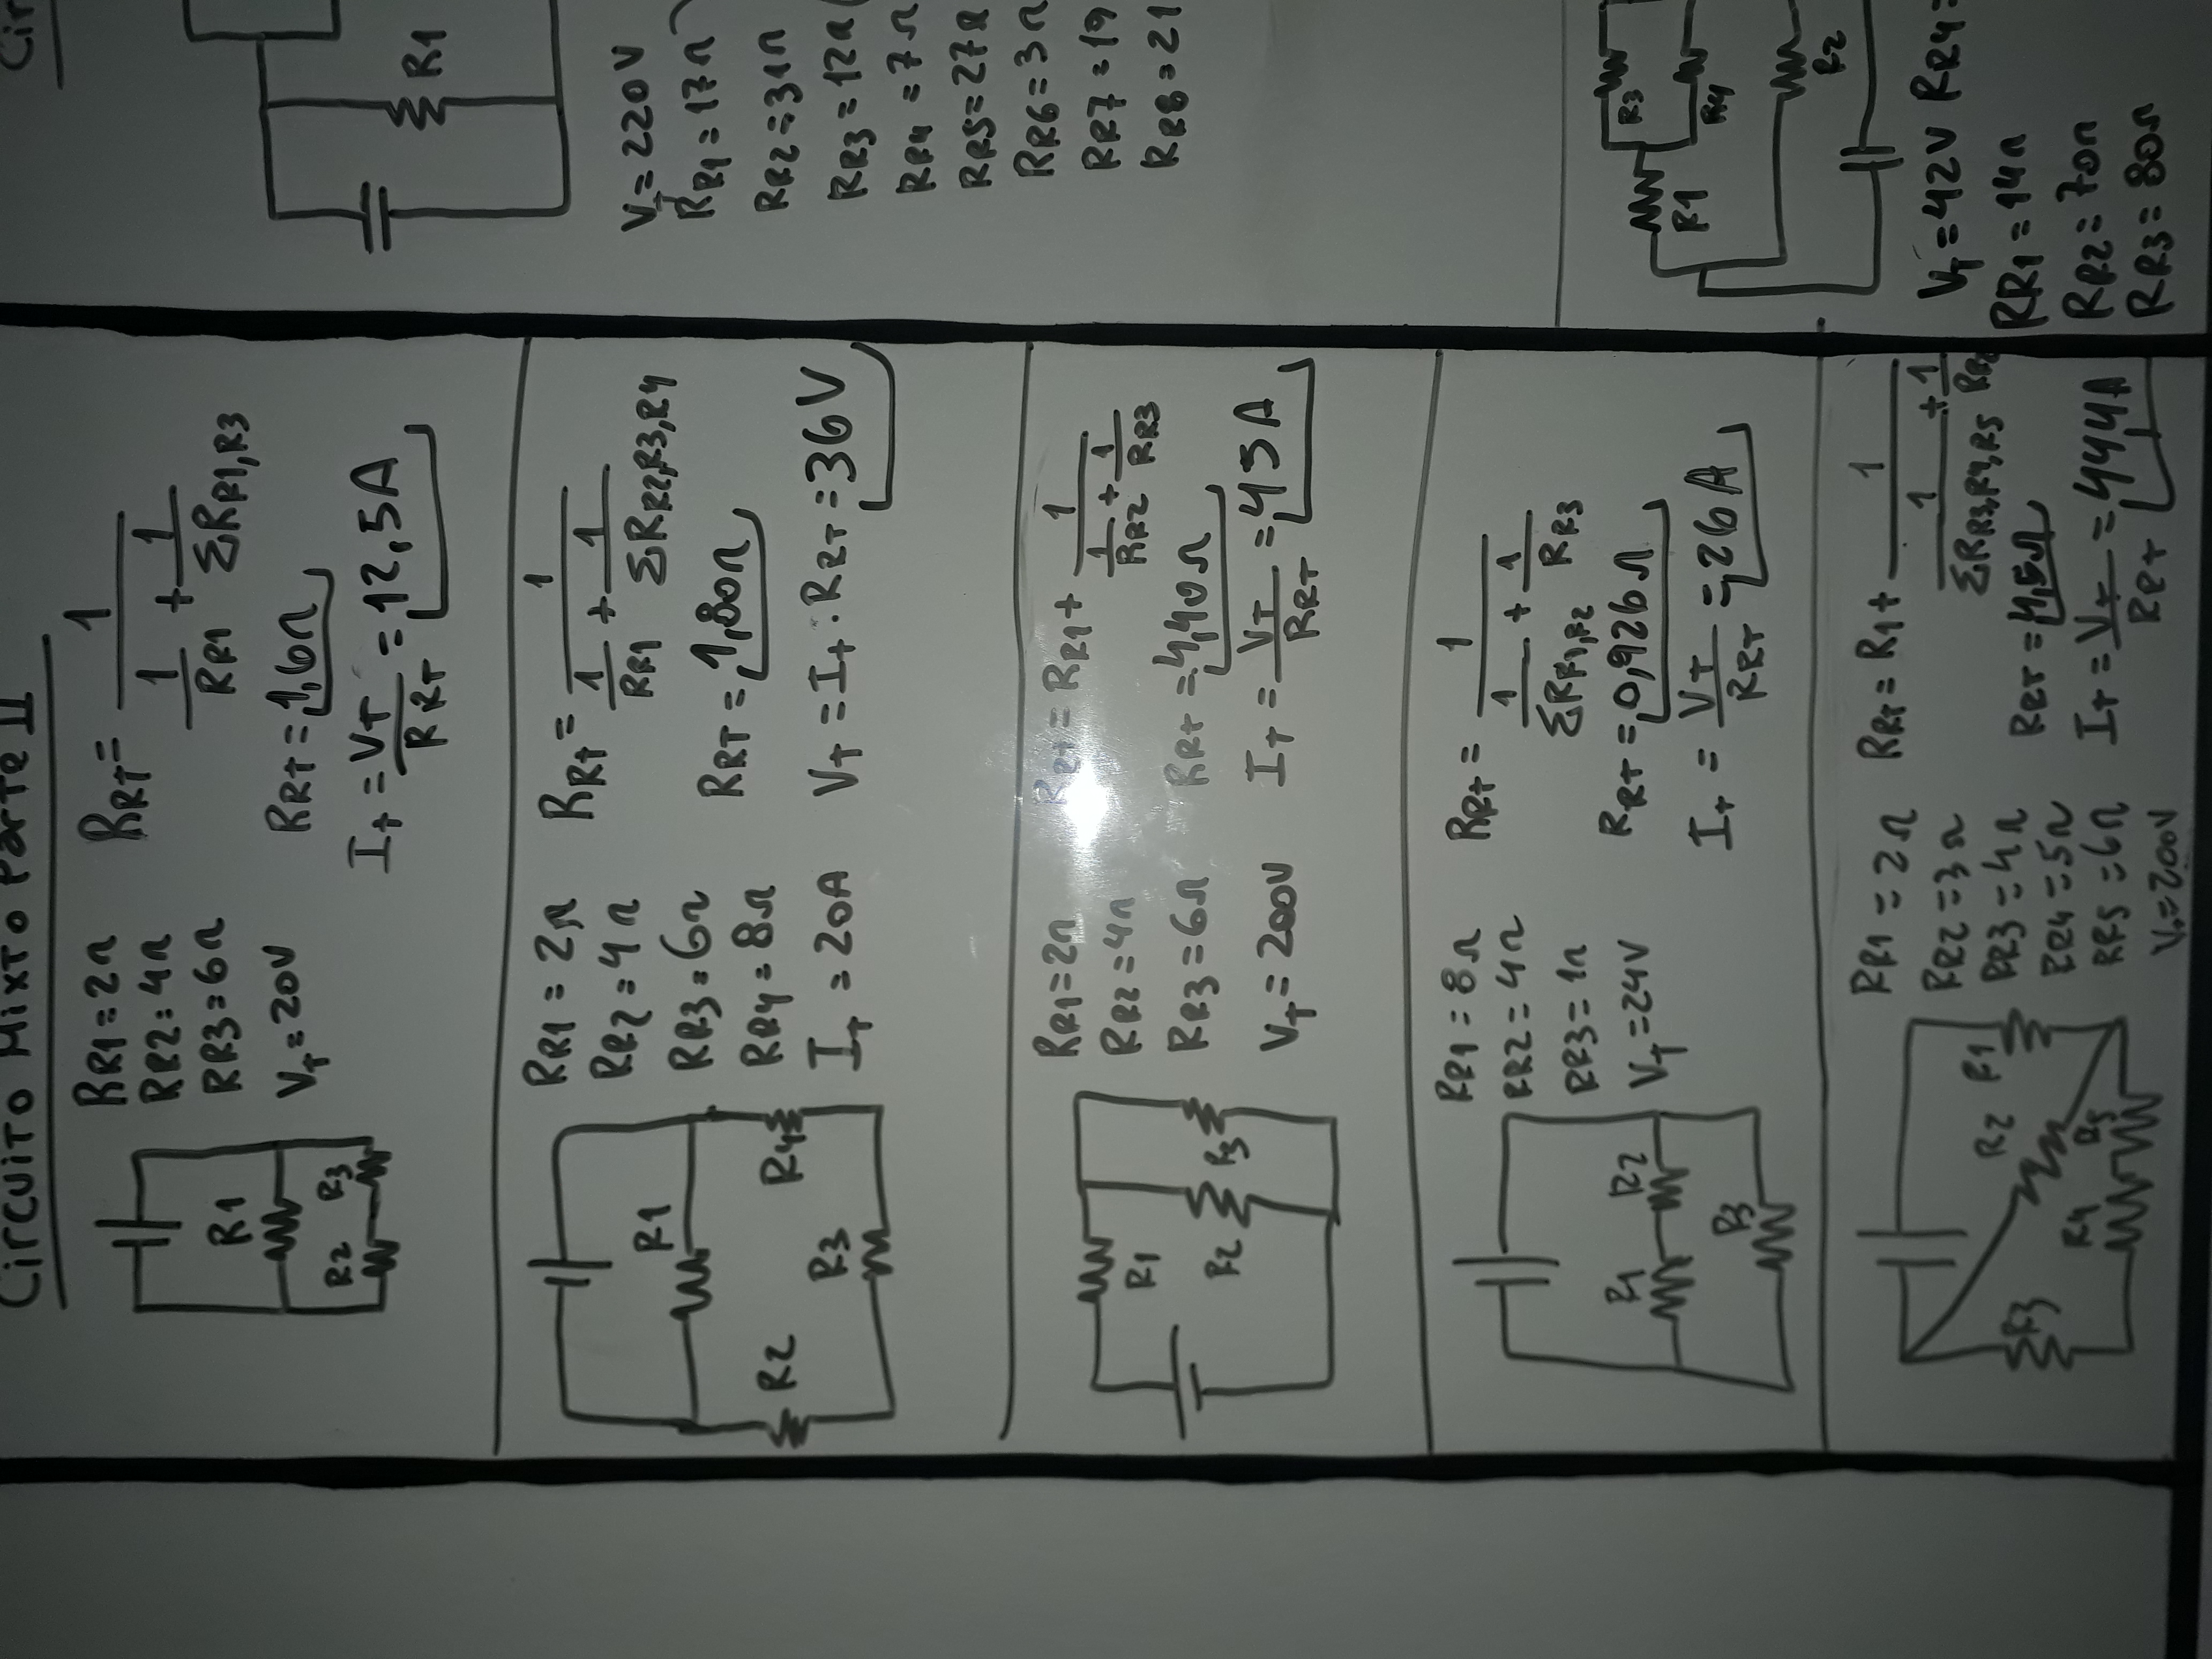 Circuito Mixto Parte II
RR1=2Ω
RR2=4Ω
RR3=6Ω
VT=20V
R1
R2 R3
RRT= 1 / (1/RR1 + 1/ΣRR1,R3)
RRT=1,6Ω
IT=VT/RRT=12,5A
RR1=2Ω
RR2=4Ω
RR3=6Ω
RR4=8Ω
IT=20A
R1
R2 R4
R3
RRT= 1 / (1/RR1 + 1/ΣRR2,R3,R4)
RRT=1,80Ω
VT=IT.RRT=36V
RR1=2Ω
RR2=4Ω
RR3=6Ω
VT=200V
R1
R2 R3
RRT=RR1+ 1 / (1/RR2 + 1/RR3)
RRT=4,40Ω
IT=VT/RRT=45A
RR1=8Ω
RR2=4Ω
RR3=1Ω
VT=24V
R1 R2
R3
RRT= 1 / (1/ΣRR1,R2 + 1/RR3)
RRT=0,926Ω
IT=VT/RRT=26A
RR1=2Ω
RR2=3Ω
RR3=4Ω
RR4=5Ω
RR5=6Ω
VT=200V
R2 R1
R3
R4 R5
RRT=R1+ 1 / (1/ΣRR3,R4,R5 + 1/RR2)
RRT=4,5Ω
IT=VT/RRT=44,4A
Cir
R1
VT=220V
RR1=17Ω
RR2=31Ω
RR3=12Ω
RR4=7Ω
RR5=27Ω
RR6=3Ω
RR7=19
RR8=21
R3
R1
R4
R2
VT=42V RR4=
RR1=14Ω
RR2=70Ω
RR3=80Ω